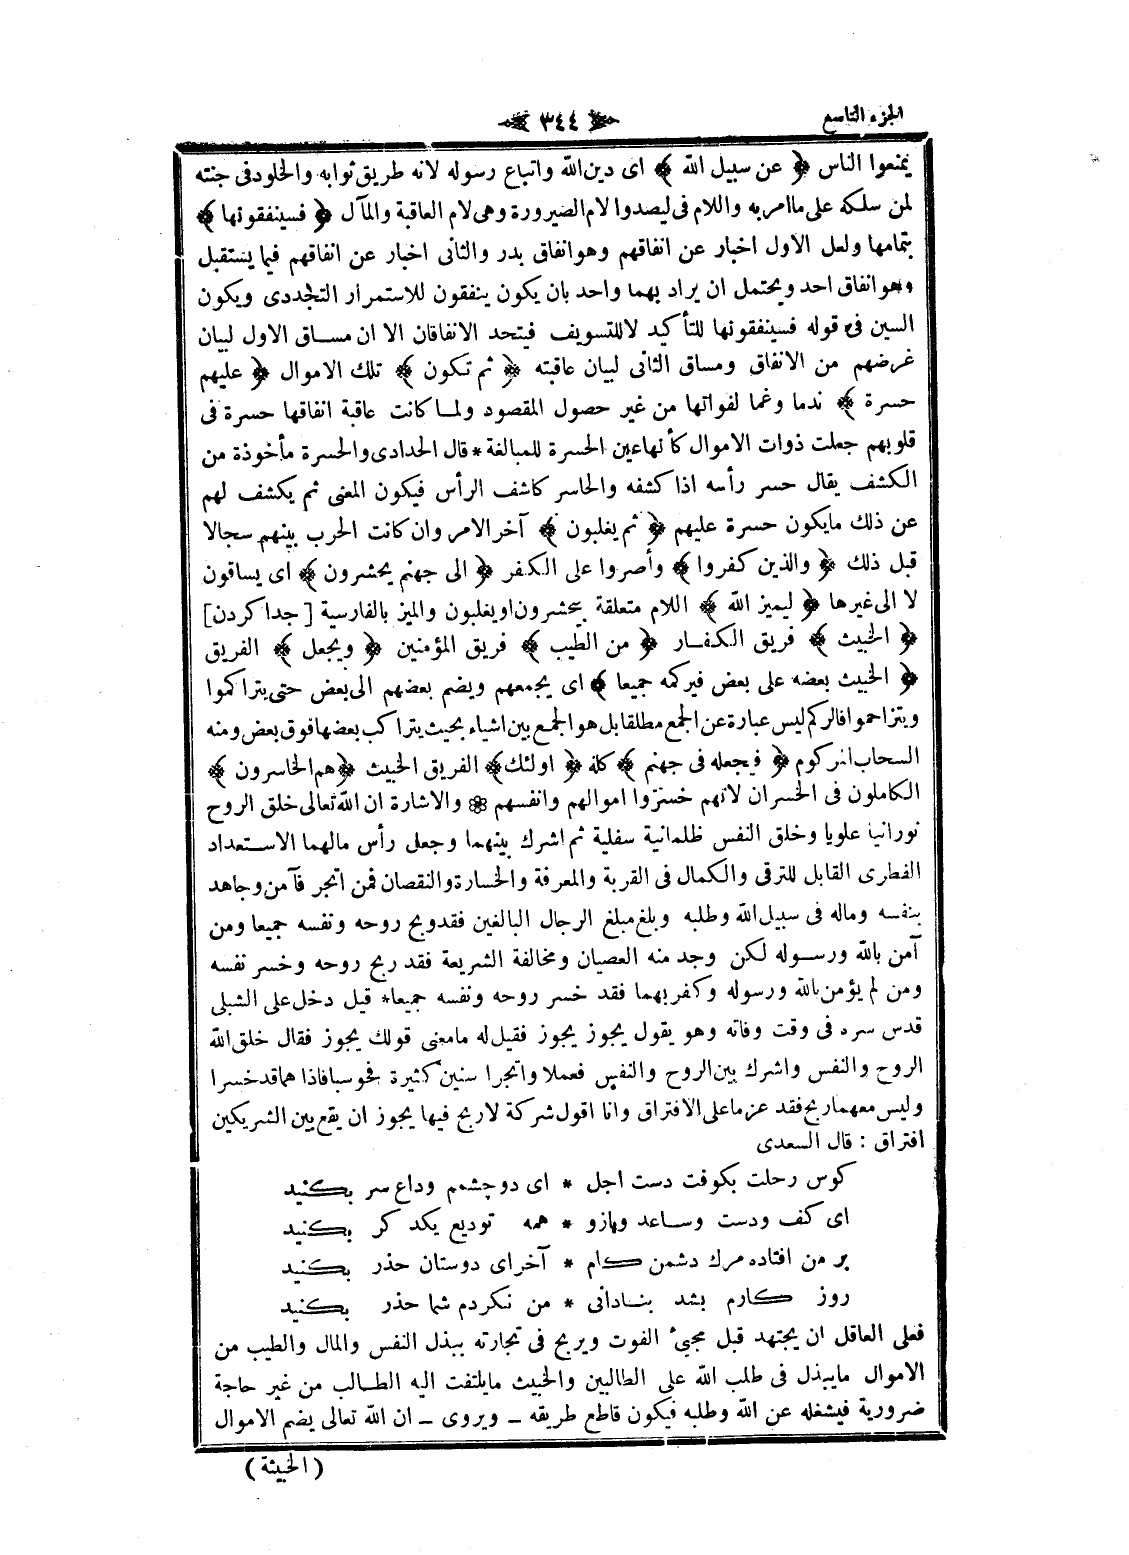 الجزء التاسع
٣٤٤
يمنعوا الناس ﴿ عن سبيل الله ﴾ اى دين الله واتباع رسوله لانه طريق ثوابه والخلود فى جنته
لمن سلكه على ما امر به واللام فى ليصدوا لام الصيرورة وهى لام العاقبة والمآل ﴿ فسينفقونها ﴾
بتمامها ولعل الاول اخبار عن انفاقهم وهو انفاق بدر والثانى اخبار عن انفاقهم فيما يستقبل
وهو انفاق احد ويحتمل ان يراد بهما واحد بان يكون ينفقون للاستمرار التجددى ويكون
السين فى قوله فسينفقونها للتأكيد لا للتسويف فيتحد الانفاقان الا ان مساق الاول لبيان
غرضهم من الانفاق ومساق الثانى لبيان عاقبته ﴿ ثم تكون ﴾ تلك الاموال ﴿ عليهم
حسرة ﴾ ندما وغما لفواتها من غير حصول المقصود ولما كانت عاقبة انفاقها حسرة فى
قلوبهم جعلت ذوات الاموال كأنها عين الحسرة للمبالغة * قال الحدادى والحسرة مأخوذة من
الكشف يقال حسر رأسه اذا كشفه والحاسر كاشف الرأس فيكون المعنى ثم يكشف لهم
عن ذلك مايكون حسرة عليهم ﴿ ثم يغلبون ﴾ آخر الامر وان كانت الحرب بينهم سجالا
قبل ذلك ﴿ والذين كفروا ﴾ وأصروا على الكفر ﴿ الى جهنم يحشرون ﴾ اى يساقون
لا الى غيرها ﴿ ليميز الله ﴾ اللام متعلقة بيحشرون او يغلبون والميز بالفارسية [ جدا كردن ]
﴿ الخبيث ﴾ فريق الكفار ﴿ من الطيب ﴾ فريق المؤمنين ﴿ ويجعل ﴾ الفريق
﴿ الخبيث بعضه على بعض فيركمه جميعا ﴾ اى يجمعهم ويضم بعضهم الى بعض حتى يتراكموا
ويتزاحموا فالركم ليس عبارة عن الجمع مطلقا بل هو الجمع بين اشياء بحيث يتراكب بعضها فوق بعض ومنه
السحاب المركوم ﴿ فيجعله فى جهنم ﴾ كله ﴿ اولئك ﴾ الفريق الخبيث ﴿ هم الخاسرون ﴾
الكاملون فى الخسران لانهم خسروا اموالهم وانفسهم ❁ والاشارة ان الله تعالى خلق الروح
نورانيا علويا وخلق النفس ظلمانية سفلية ثم اشرك بينهما وجعل رأس مالهما الاستعداد
الفطرى القابل للترقى والكمال فى القربة والمعرفة والخسارة والنقصان فمن اتجر فآمن وجاهد
بنفسه وماله فى سبيل الله وطلبه وبلغ مبلغ الرجال البالغين فقد ربح روحه ونفسه جميعا ومن
آمن بالله ورسوله لكن وجد منه العصيان ومخالفة الشريعة فقد ربح روحه وخسر نفسه
ومن لم يؤمن بالله ورسوله وكفر بهما فقد خسر روحه ونفسه جميعا * قيل دخل على الشبلى
قدس سره فى وقت وفاته وهو يقول يجوز يجوز فقيل له مامعنى قولك يجوز فقال خلق الله
الروح والنفس واشرك بين الروح والنفس فعملا واتجرا سنين كثيرة فحوسبا فاذا هما قد خسرا
وليس معهما ربح فقد عزما على الافتراق وانا اقول شركة لا ربح فيها يجوز ان يقع بين الشريكين
افتراق : قال السعدى
كوس رحلت بكوفت دست اجل * اى دو چشمم وداع سر بكنيد
اى كف ودست وساعد وبازو * همه توديع يكد كر بكنيد
بر من افتاده مرك دشمن كام * آخر اى دوستان حذر بكنيد
روز كارم بشد بنادانى * من نكردم شما حذر بكنيد
فعلى العاقل ان يجتهد قبل مجىء الفوت ويربح فى تجارته ببذل النفس والمال والطيب من
الاموال مايبذل فى طلب الله على الطالبين والخبيث مايلتفت اليه الطالب من غير حاجة
ضرورية فيشغله عن الله وطلبه فيكون قاطع طريقه – ويروى – ان الله تعالى يضم الاموال
( الخبيثة )